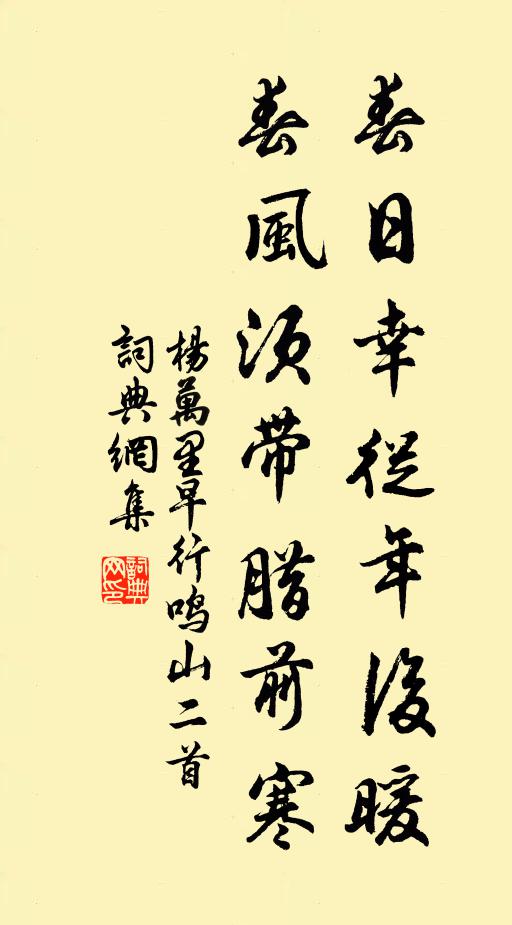 春日幸從年後暖
春風須帶腊前寒
楊萬里早行鳴山二首
詞典網集
詞典網印